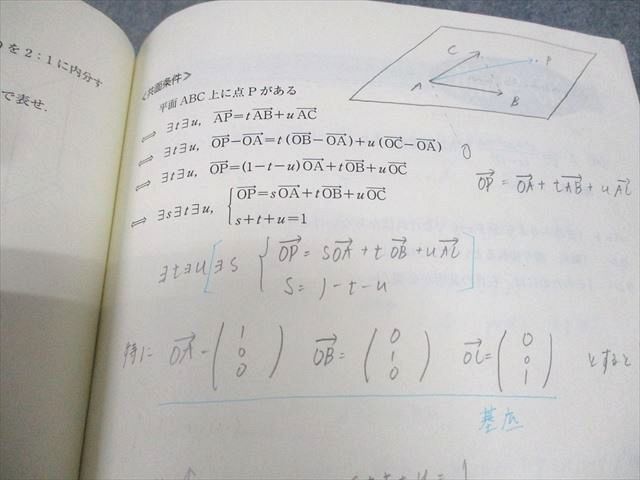 を2:1に内分す
で表せ.
<共面条件>
平面ABC上に点Pがある
⟺ ∃t∃u, AP→=tAB→+uAC→
⟺ ∃t∃u, OP→−OA→=t(OB→−OA→)+u(OC→−OA→)
⟺ ∃t∃u, OP→=(1−t−u)OA→+tOB→+uOC→
⟺ ∃s∃t∃u, { OP→=sOA→+tOB→+uOC→
s+t+u=1
C
P
A
B
O
OP→ = OA→ + tAB→ + uAC→
∃t∃u [∃s { OP→ = sOA→ + tOB→ + uAC→
s = 1−t−u ]
特に OA→ = (1 0 0) OB→ = (0 1 0) OC→ = (0 0 1) とすると
基底